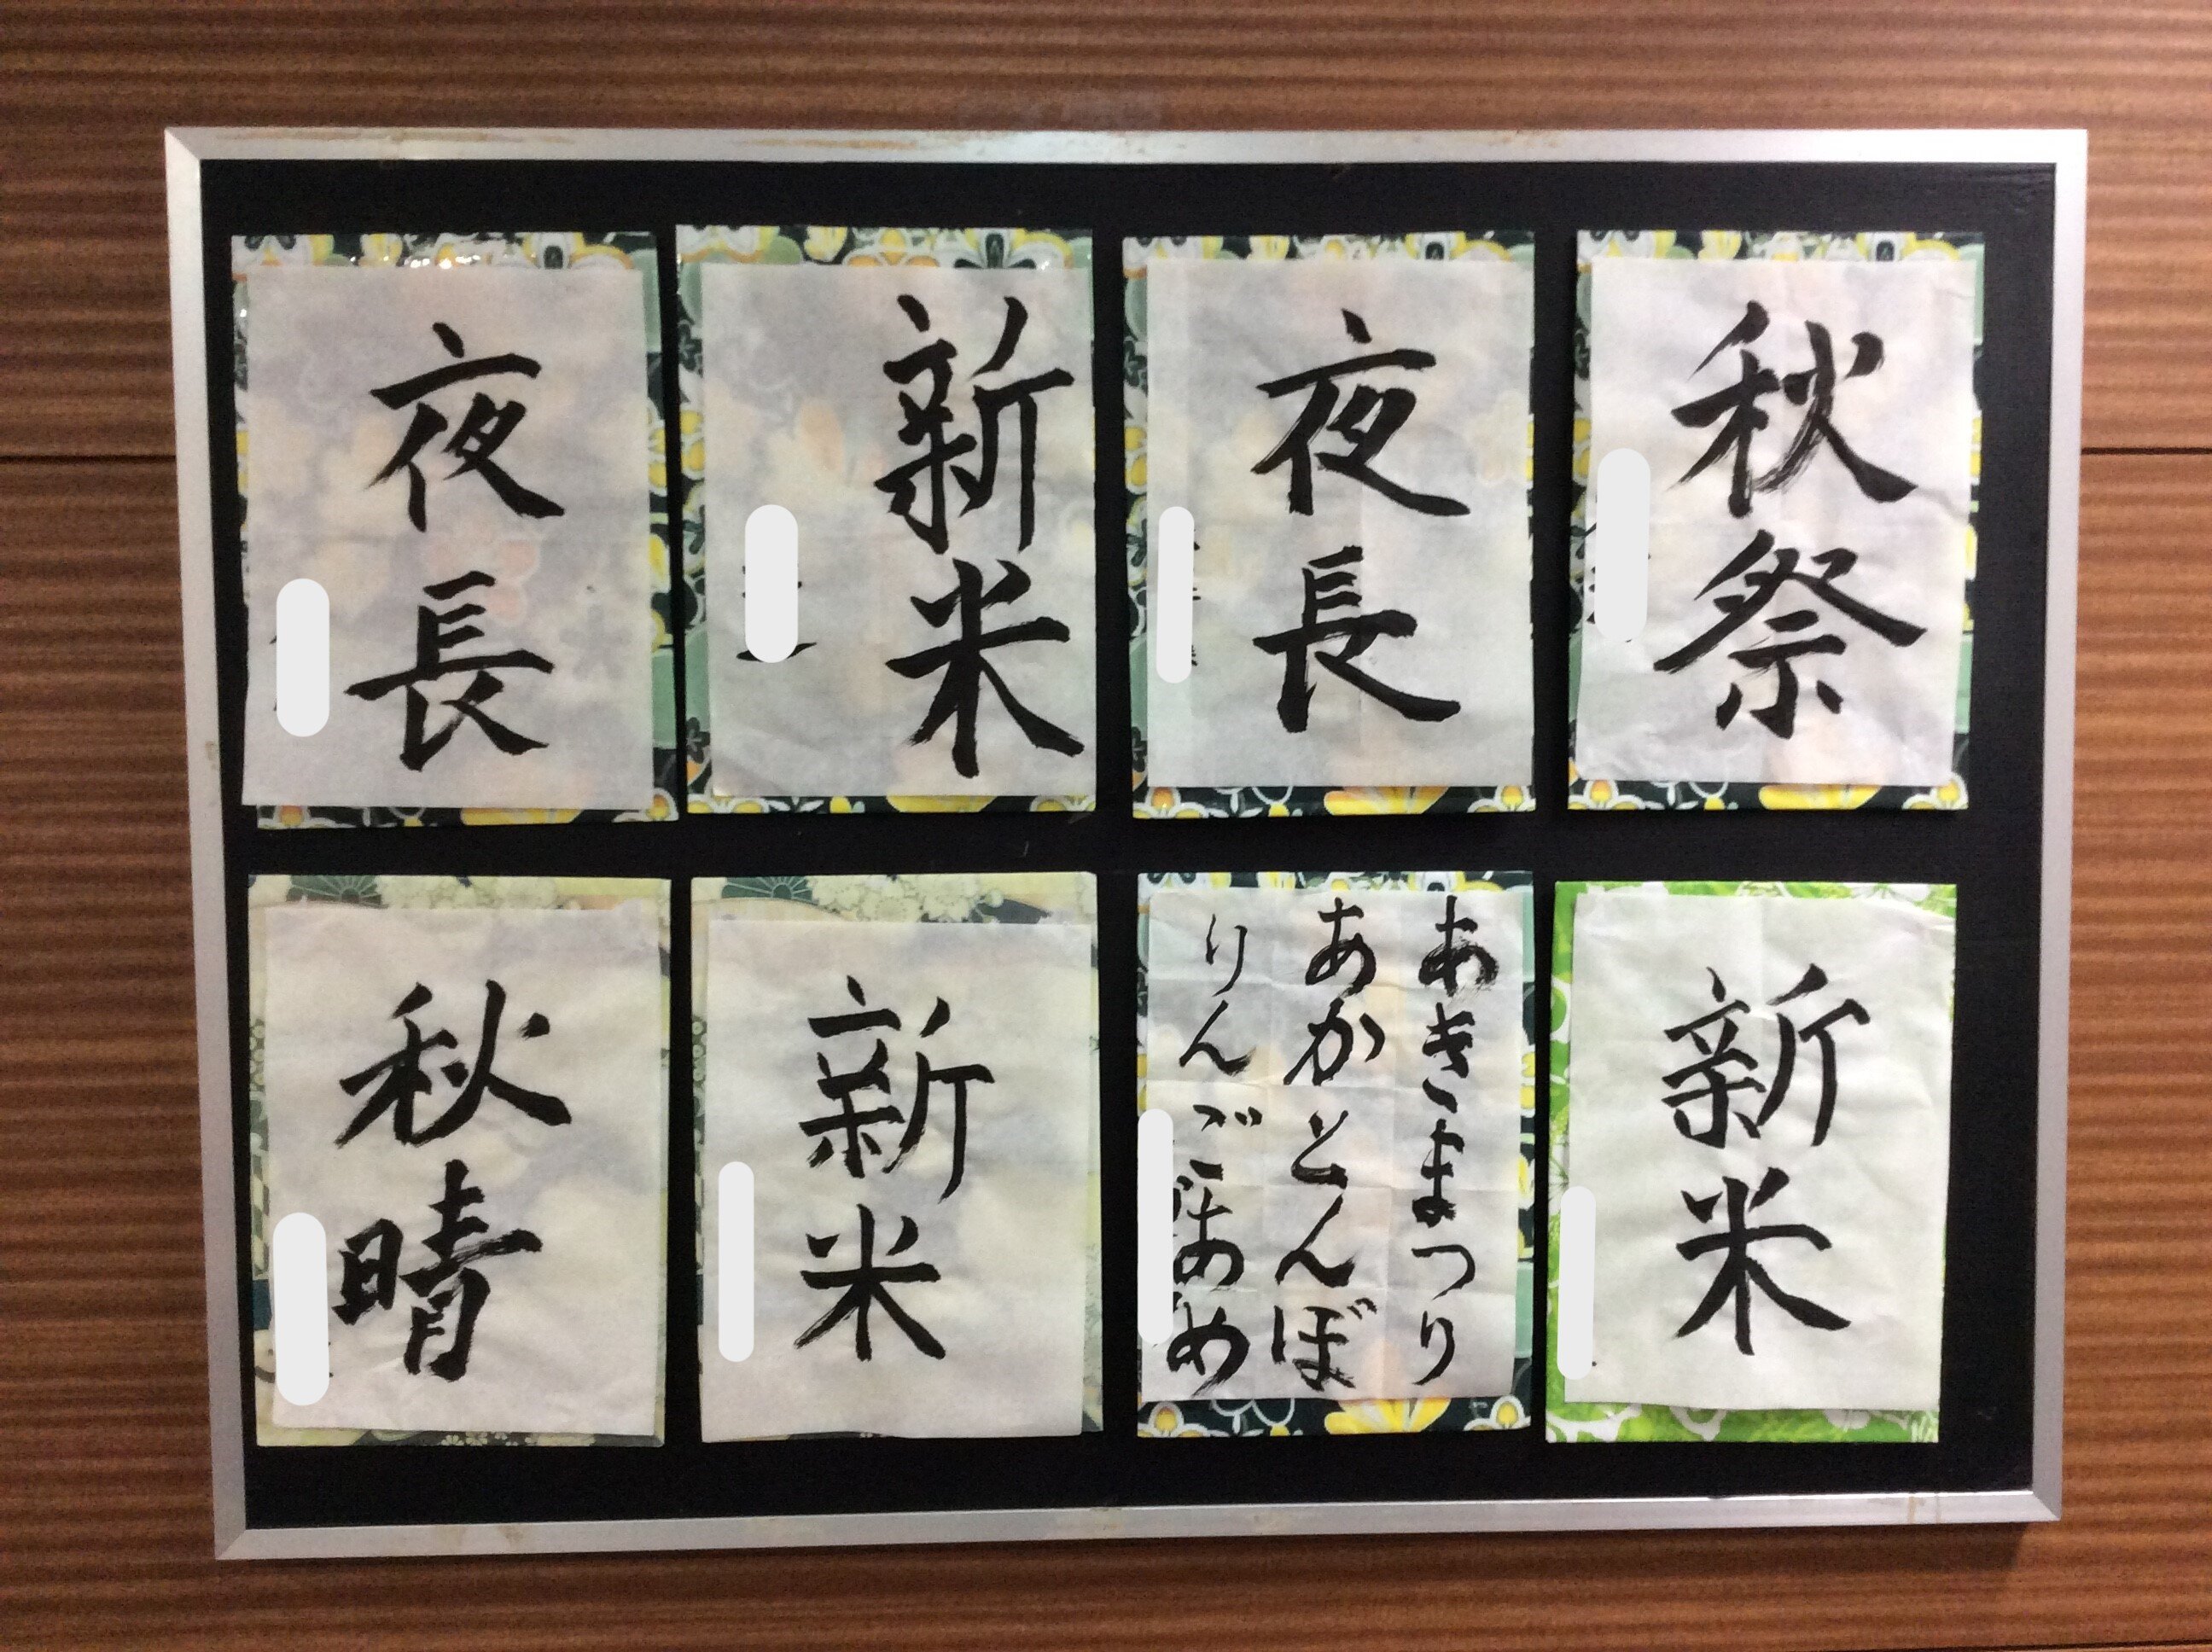 秋祭
夜長
新米
夜長
新米
あきまつり
あかとんぼ
りんごあめ
新米
秋晴